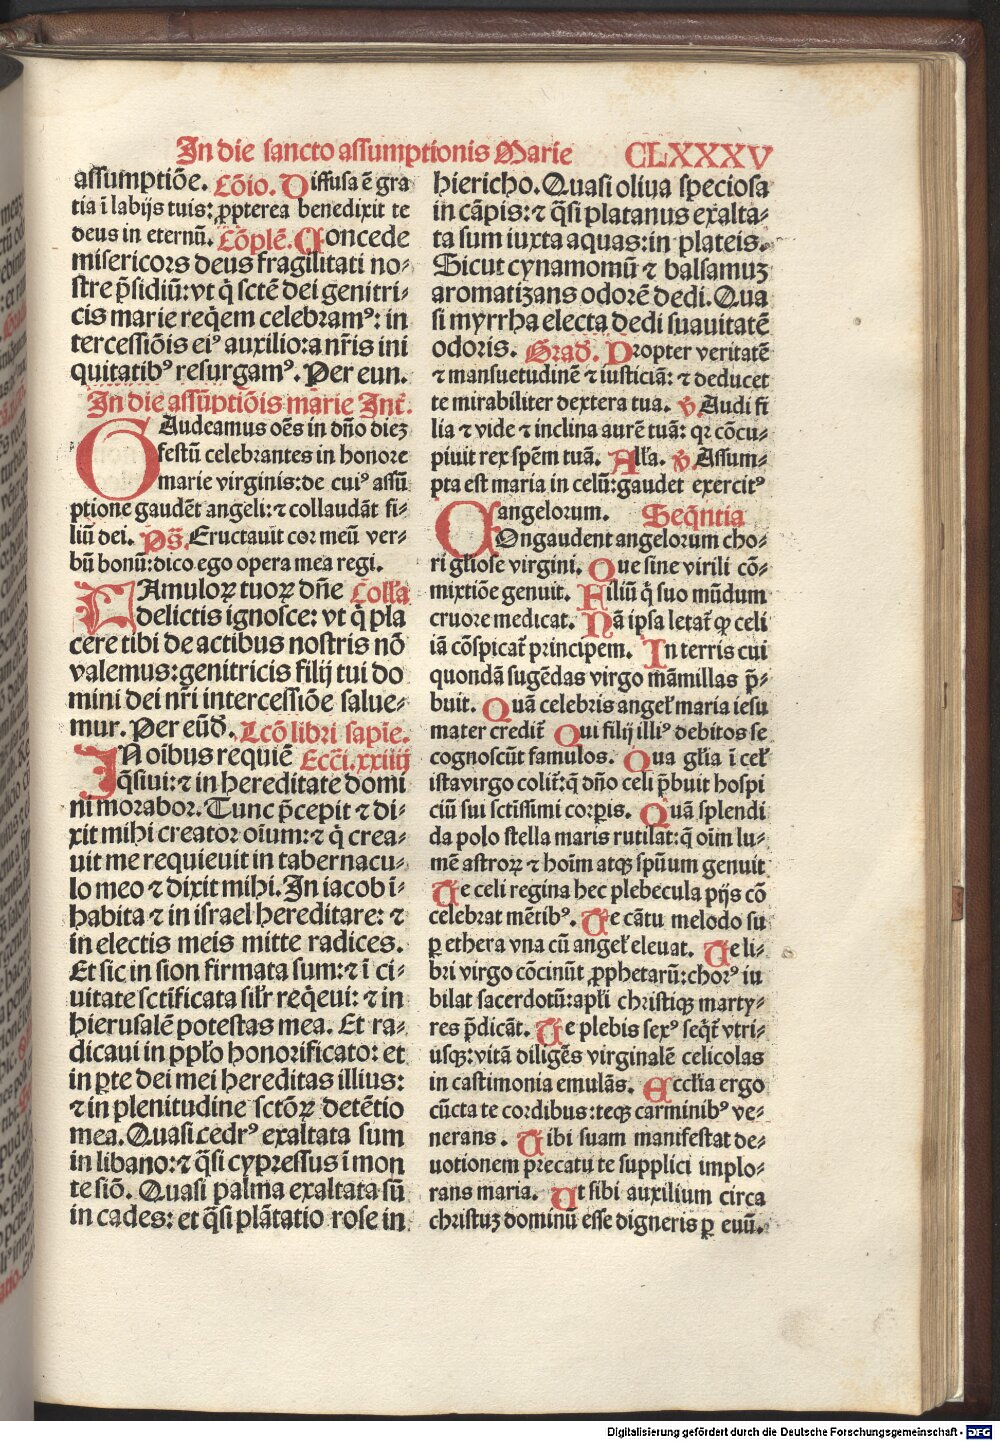 In die sancto assumptionis Marie CLXXXV
assumptiōe. Cōio. Diffusa ē gra
tia ī labijs tuis: ꝓpterea benedixit te
deus in eternū. Cōplē. Concede
misericors deus fragilitati no⸗
stre p̄sidiū: vt q̇ sctē dei genitri⸗
cis marie req̄em celebramꝰ: in
tercessiōis eiꝰ auxilio: a nr̄is ini
quitatibꝰ resurgamꝰ. Per eun.
In die assūptiōis marie Int̄.
GAudeamus oēs in dn̄o diez
festū celebrantes in honore
marie virginis: de cuiꝰ assū
ptione gaudēt angeli: ⁊ collaudāt fi⸗
liū dei. Ps̄. Eructauit cor meū ver⸗
bū bonū: dico ego opera mea regi.
FAmuloꝝ tuoꝝ dn̄e Colla
delictis ignosce: vt q̇ pla
cere tibi de actibus nostris nō
valemus: genitricis filij tui do
mini dei nr̄i intercessiōe salue⸗
mur. Per eūd̄. Lcō libri sapie.
IN oībus requiē Ecci̅. xxiiij
q̄siui: ⁊ in hereditate domi
ni morabor. Tunc p̄cepit ⁊ di⸗
xit mihi creator oīum: ⁊ q̇ crea⸗
uit me requieuit in tabernacu⸗
lo meo ⁊ dixit mihi. In iacob ī⸗
habita ⁊ in israel hereditare: ⁊
in electis meis mitte radices.
Et sic in sion firmata sum: ⁊ ī ci⸗
uitate sctīficata silr̄ req̄eui: ⁊ in
hierusalē potestas mea. Et ra⸗
dicaui in ppło honorificato: et
in ꝑte dei mei hereditas illius:
⁊ in plenitudine sctōꝝ detētio
mea. Quasi cedrꝰ exaltata sum
in libano: ⁊ q̄si cypressus ī mon
te siō. Quasi palma exaltata sū
in cades: et q̄si plātatio rose in
hiericho. Quasi oliua speciosa
in cāpis: ⁊ q̄si platanus exalta⸗
ta sum iuxta aquas: in plateis.
Sicut cynamomū ⁊ balsamuz
aromatizans odorē dedi. Qua
si myrrha electa dedi suauitatē
odoris. Grad̄. Propter veritatē
⁊ mansuetudinē ⁊ iusticiā: ⁊ deducet
te mirabiliter dextera tua. ℣. Audi fi
lia ⁊ vide ⁊ inclina aurē tuā: qꝛ cōcu⸗
piuit rex spēm tuā. Alła. ℣. Assum⸗
pta est maria in celū: gaudet exercitꝰ
angelorum. Seq̄ntia
COngaudent angelorum cho⸗
ri głiose virgini. Que sine virili cō⸗
mixtiōe genuit. Filiū q̇ suo mūdum
cruore medicat. Nā ipsa letat᷑ ꝙ celi
iā cōspicat᷑ principem. In terris cui
quondā sugēdas virgo māmillas p̄⸗
buit. Quā celebris angeł maria iesu
mater credit᷑ Qui filij illiꝰ debitos se
cognoscūt famulos. Qua głia ī ceł
ista virgo colit᷑: q̄ dn̄o celi p̄buit hospi
ciū sui sctīssimi corꝑis. Quā splendi
da polo stella maris rutilat: q̄ oīm lu⸗
mē astroꝝ ⁊ hoīm atqꝫ spūum genuit
Te celi regina hec plebecula pijs cō
celebrat mētibꝰ. Te cātu melodo su
ꝑ ethera vna cū angeł eleuat. Te li⸗
bri virgo cōcinūt ꝓphetarū: chorꝰ iu
bilat sacerdotū: apłi christiqꝫ marty⸗
res p̄dicāt. Te plebis sexꝰ seq̄t᷑ vtri⸗
usqꝫ: vitā diligēs virginalē celicolas
in castimonia emulās. Eccłia ergo
cūcta te cordibus: teqꝫ carminibꝰ ve⸗
nerans. Tibi suam manifestat de⸗
uotionem precatu te supplici implo⸗
rans maria. Ut sibi auxilium circa
christuz dominū esse digneris ꝑ euū.
Digitalisierung gefördert durch die Deutsche Forschungsgemeinschaft - DFG